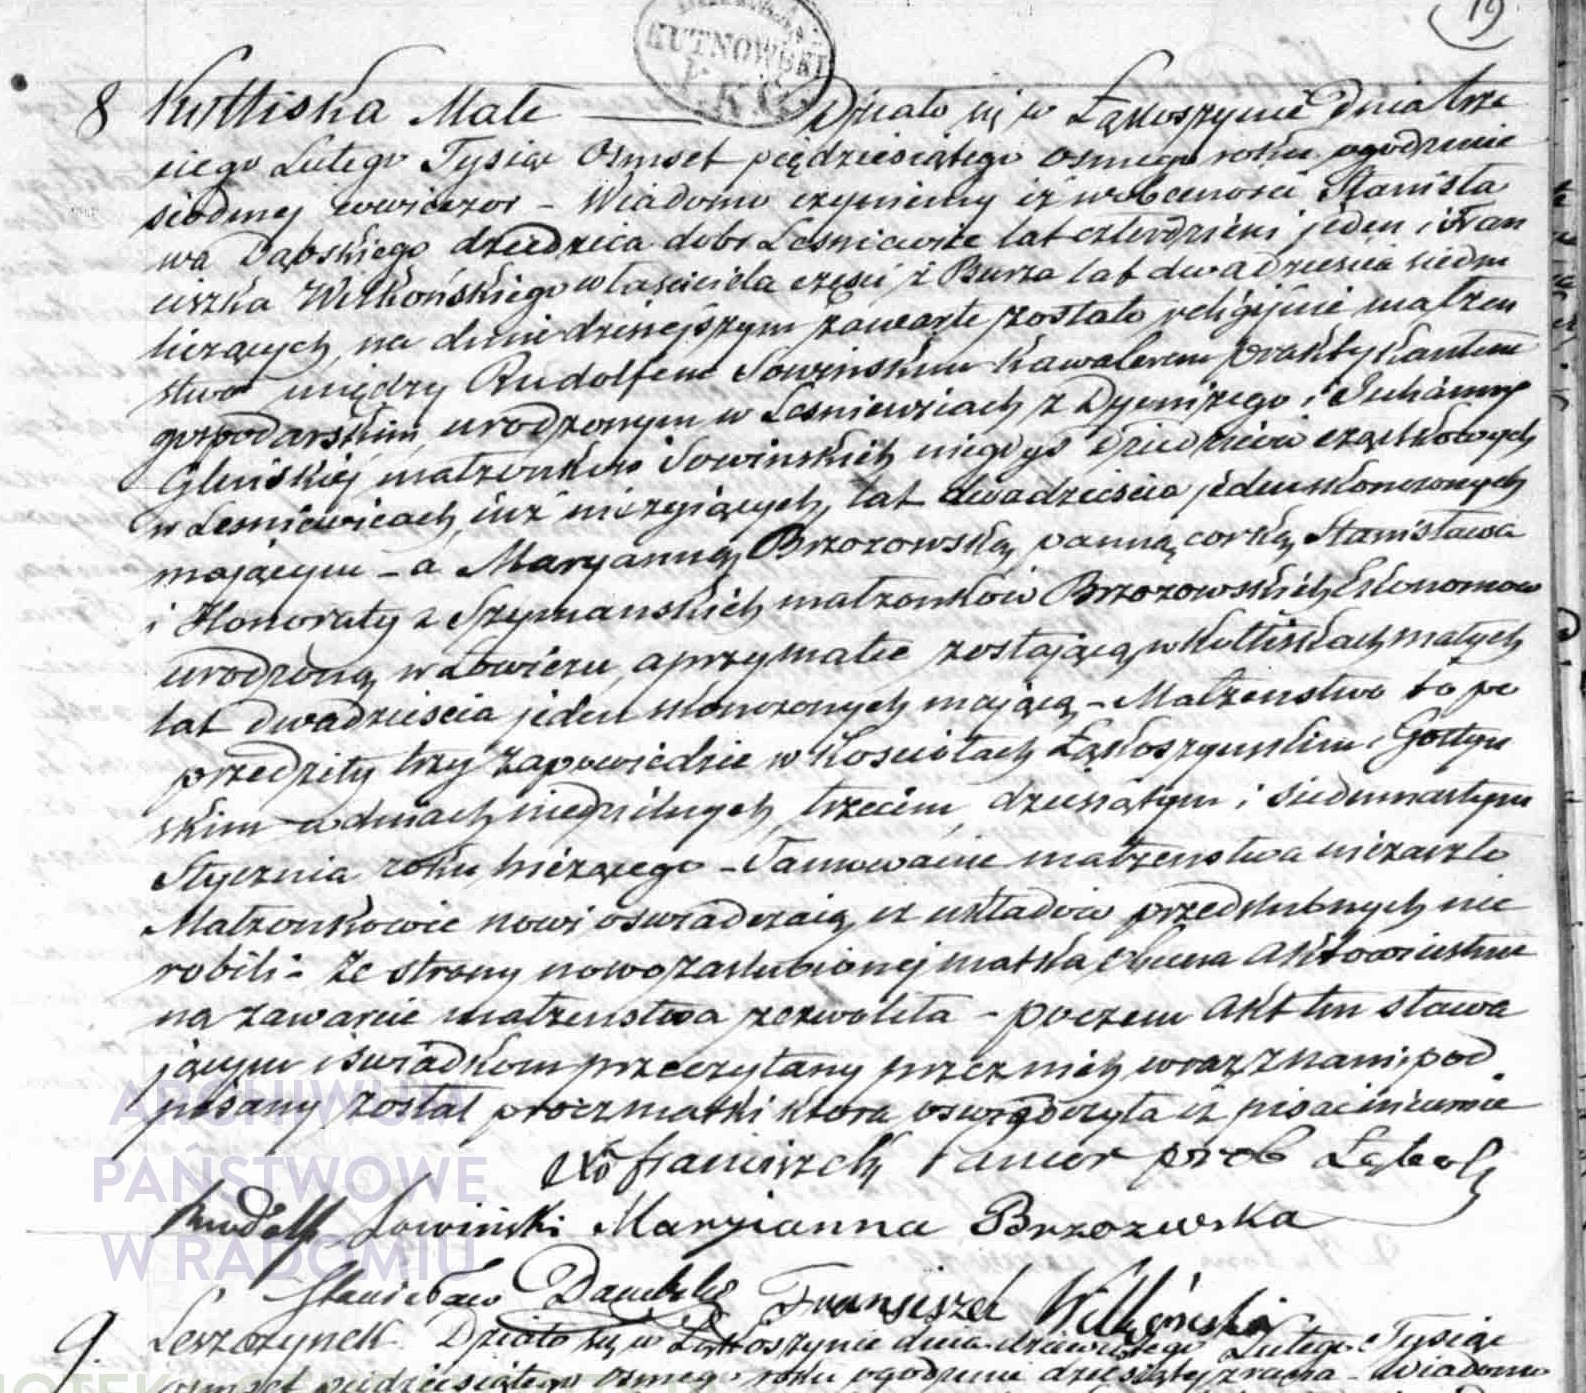 19
KUTNOWSKI
8 Kuttiska Małe — Działo się w Łąkoszynie Dnia trze
ciego Lutego Tysiąc Osmset piędziesiątego osmego roku ogodzinie
siodmej wwieczor – Wiadomo czyniemy iż wobecności Stanisła
wa Dąbskiego dziedzica dobr Lesniewice lat czterdzieści jeden i Fran
ciszka Wilkońskiego właściciela części z Burza lat dwadzieścia siedm
liczących, na dniu dzisiejszym zawarte zostało religijnie małżen
stwo między Rudolfem Sowińskim kawalerem praktykantem
gospodarskim, urodzonym w Lesniewicach z Dyonizego i Julianny
Glińskiej małżonków Sowinskich niegdyś dziedziców cząstkowych
w Lesniewicach, iuż nieżyiących, lat dwadzieścia jeden skonczonych
mającym – a Maryanną Brzozowską panną corką Stanisława
i Honoraty z Szymanskich małzonków Brzozowskich Ekonomow
urodzoną w Łowiczu, a przy matce zostającą w Kuttiskach małych
lat dwadzieścia jeden skonczonych mającą – Małzenstwo to po
przedziły trzy zapowiedzie w Kosciołach Łąkoszynskim i Gostyn
skim w dniach niedzielnych, trzecim, dziesiątym i siedmnastym
Stycznia roku bieżącego – Tamowanie małzenstwa niezaszło
Małzonkowie nowi oswiadczaią iż układow przedslubnych nie
robili – Ze strony nowozaslubionej matka obecna Aktowi ustnie
na zawarcie małzenstwa zezwoliła – poczem Akt ten stawa
jącym i swiadkom przeczytany przez nich wraz z nami pod
pisany został procz matki ktora oswiadczyła iż pisac nieumie
Xs Franciszek prob Łąkosz
Rudolf Sowiński Maryianna Brzozwska
Stanisław Dąmbski Franciszek Wilkoński
9. Leszczynek Działo się w Łąkoszynie dnia dziewiątego Lutego Tysiąc
osmset pięдziesiątego osmego roku ogodzinie dziesiąty zrana – Wiadomo
ARCHIWUM
PAŃSTWOWE
W RADOMIU